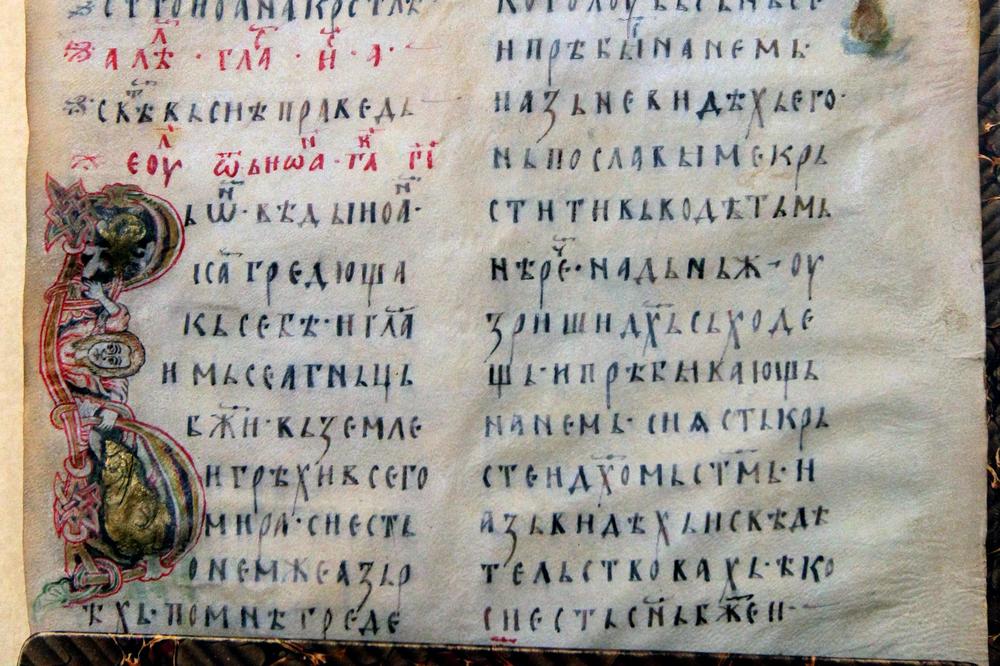 алѣ · гла · н · а ·
скѣкьснѣ пракедь
еоу ѿьнѡа · гл гі
ьѡ · вѣдыноа ·
іса гредюща
кьсебѣ · и гла
имьсеагньць
бжи · кьземле
и грѣхи всего
мира · сиесть
онемжеазьр
ѣхь · помнѣ греде
и прѣбы на немь ·
иазьневидѣхьего ·
нь пославы ме крь
стити кькодѣтьмь
нѣрече · на дьньж оу
зриши дх҃ьсьходе
щь · и прѣбывающь
на немь · си ѧ стькрь
стеи дх҃омьст҃мь · и
азькидѣхьи скѣдѣ
тельстковахь · ѣко
сиесть сн҃ь бж҃еи ·